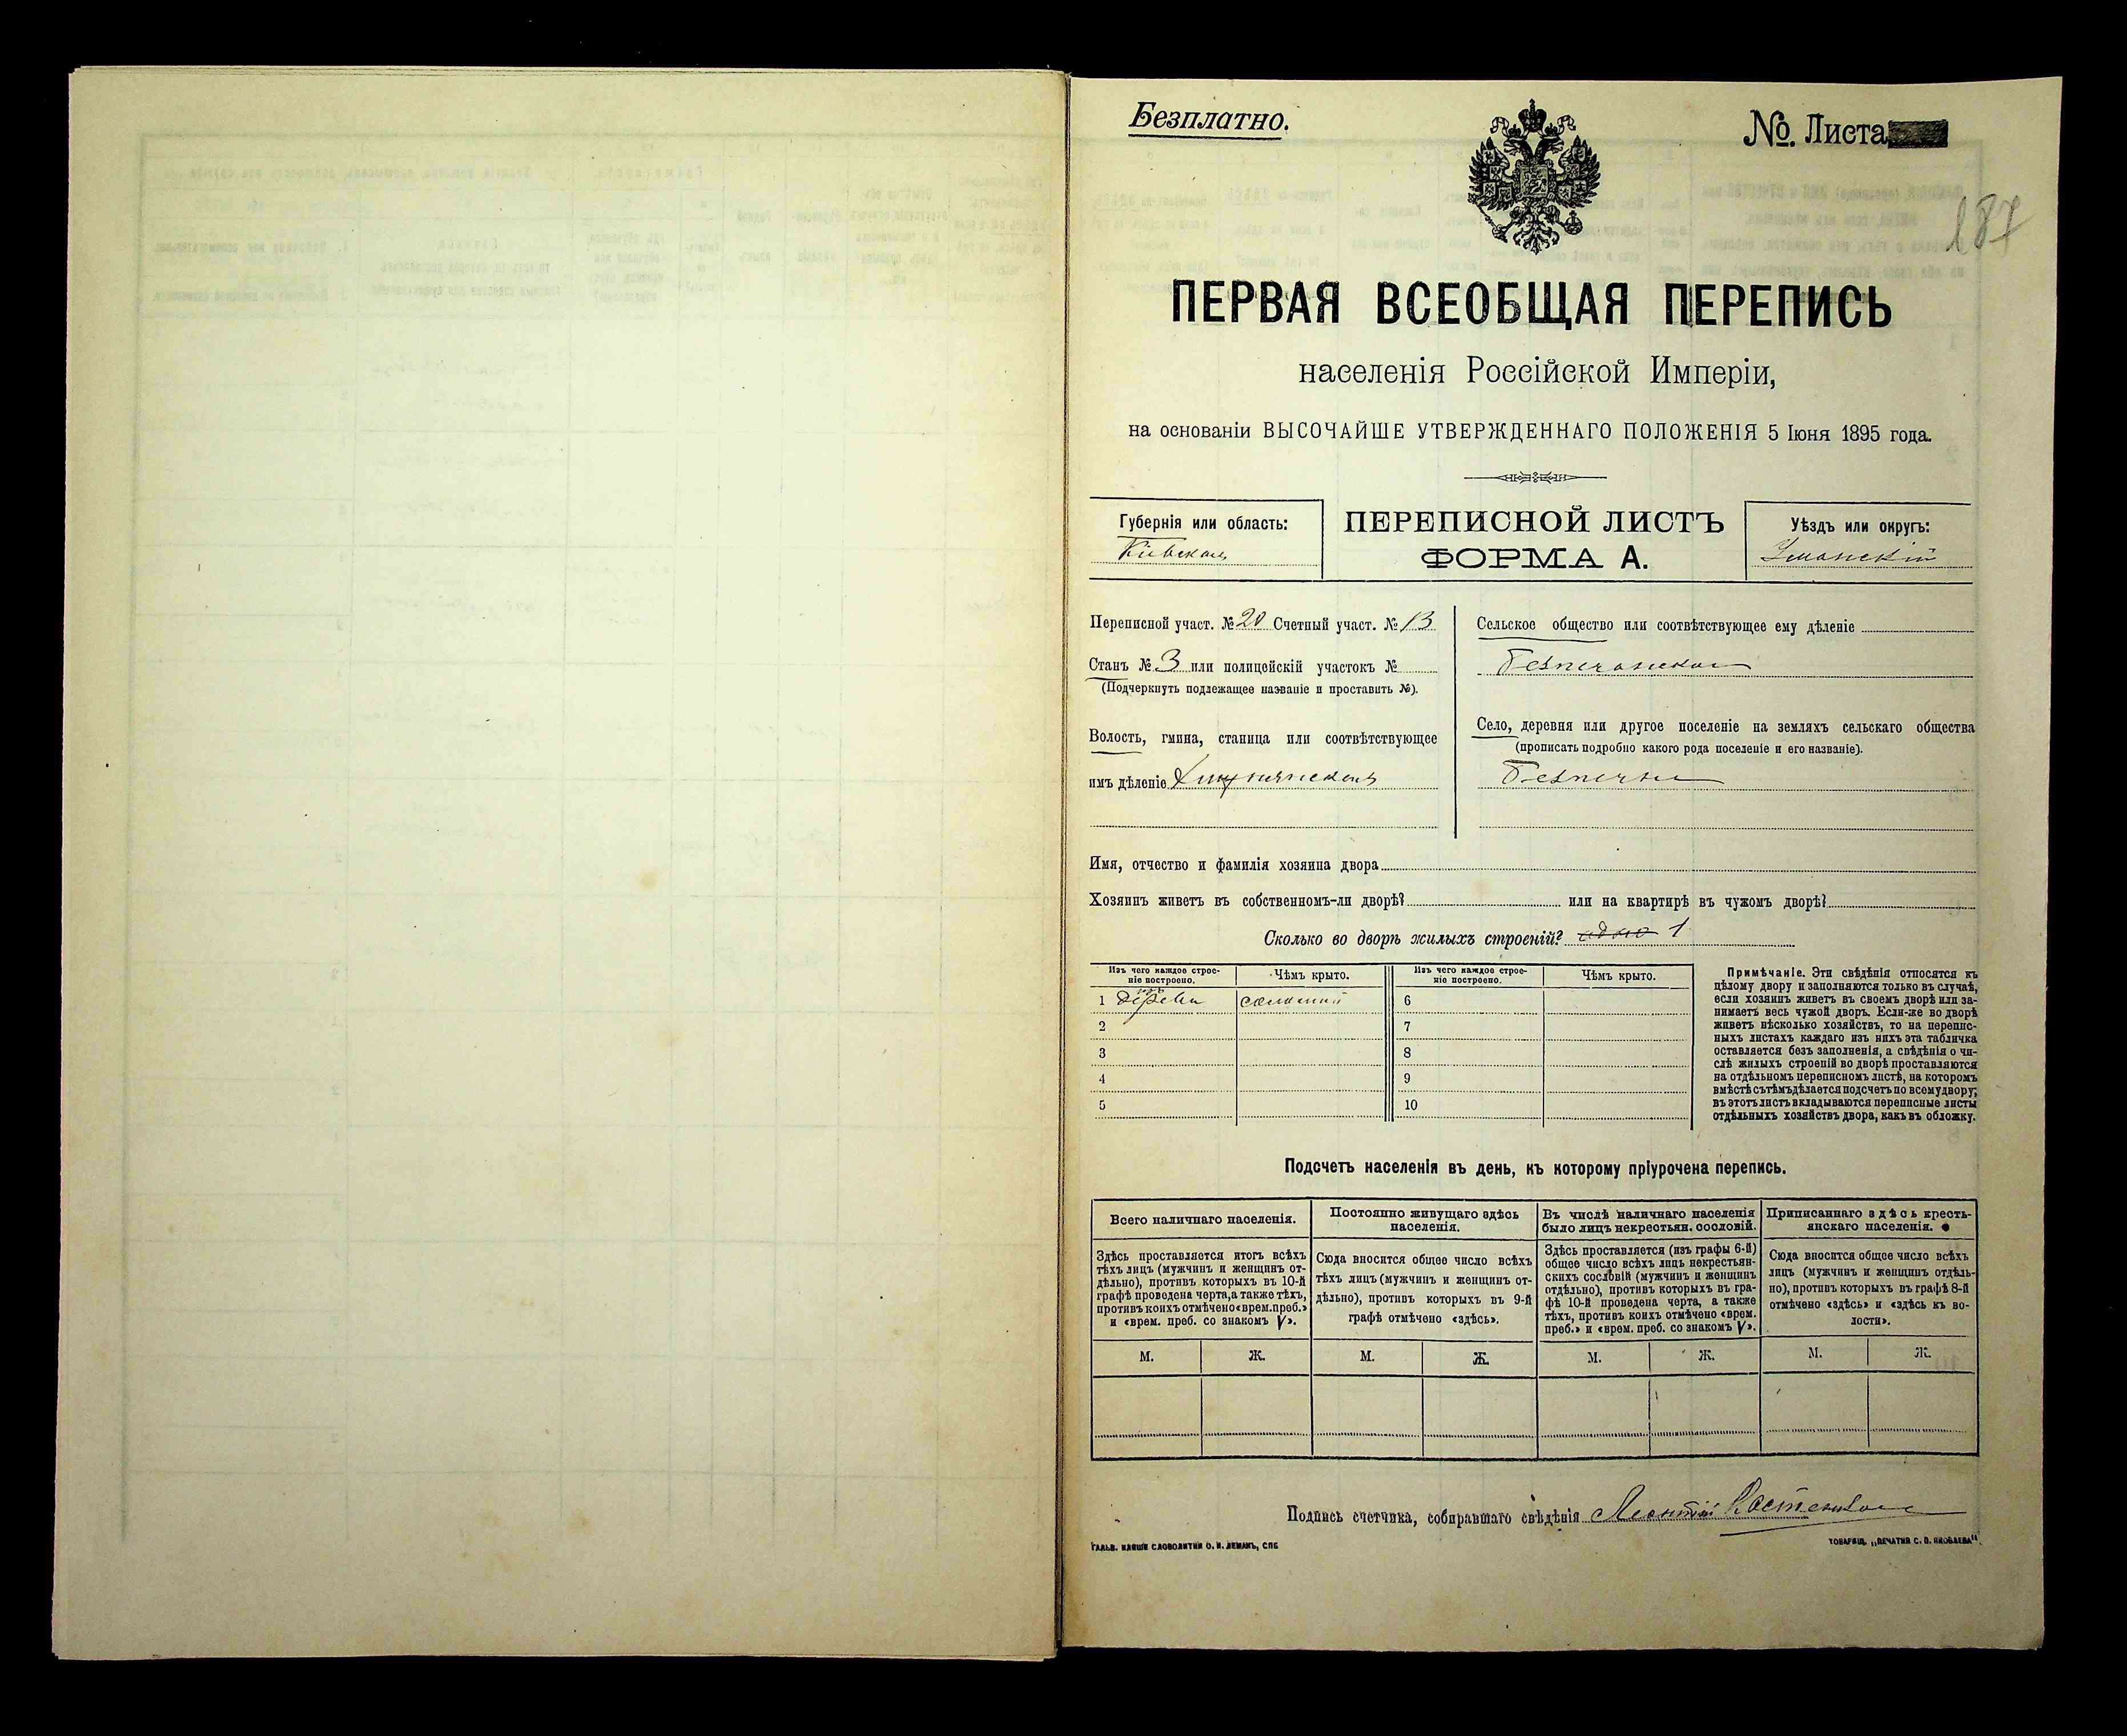 Безплатно.
№. Листа
187
ПЕРВАЯ ВСЕОБЩАЯ ПЕРЕПИСЬ
населенія Россійской Имперіи,
на основаніи ВЫСОЧАЙШЕ УТВЕРЖДЕННАГО ПОЛОЖЕНІЯ 5 Іюня 1895 года.
Губернія или область:
Кіевская
ПЕРЕПИСНОЙ ЛИСТЪ
ФОРМА А.
Уѣздъ или округъ:
Уманскій
Переписной участ. № 20 Счетный участ. № 13
Станъ № 3 или полицейскій участокъ №
(Подчеркнуть подлежащее названіе и проставить №).
Волость, гмина, станица или соотвѣтствующее
имъ дѣленіе
Сельское общество или соотвѣтствующее ему дѣленіе
Безпечанское
Село, деревня или другое поселеніе на земляхъ сельскаго общества
(прописать подробно какого рода поселеніе и его названіе).
Безпечна
Имя, отчество и фамилія хозяина двора
Хозяинъ живетъ въ собственномъ-ли дворѣ? или на квартирѣ въ чужомъ дворѣ?
Сколько во дворѣ жилыхъ строеній? одно 1
Изъ чего каждое строе-
ніе построено.
Чѣмъ крыто.
Изъ чего каждое строе-
ніе построено.
Чѣмъ крыто.
1 изъ дерева соломой 6
2 7
3 8
4 9
5 10
Примѣчаніе. Эти свѣдѣнія относятся къ
цѣлому двору и заполняются только въ случаѣ,
если хозяинъ живетъ въ своемъ дворѣ или за-
нимаетъ весь чужой дворъ. Если-же во дворѣ
живетъ нѣсколько хозяйствъ, то на перепис-
ныхъ листахъ каждаго изъ нихъ эта табличка
оставляется безъ заполненія, а свѣдѣнія о чи-
слѣ жилыхъ строеній во дворѣ проставляются
на отдѣльномъ переписномъ листѣ, на которомъ
вмѣстѣ съ тѣмъ дѣлается подсчетъ по всему двору;
въ этотъ листъ вкладываются переписные листы
отдѣльныхъ хозяйствъ двора, какъ въ обложку.
Подсчетъ населенія въ день, къ которому пріурочена перепись.
Всего наличнаго населенія.
Здѣсь проставляется итогъ всѣхъ
тѣхъ лицъ (мужчинъ и женщинъ от-
дѣльно), противъ которыхъ въ 10-й
графѣ проведена черта, а также тѣхъ,
противъ коихъ отмѣчено «врем. преб.»
и «врем. преб. со знакомъ V».
М. Ж.
Постоянно живущаго здѣсь
населенія.
Сюда вносится общее число всѣхъ
тѣхъ лицъ (мужчинъ и женщинъ от-
дѣльно), противъ которыхъ въ 9-й
графѣ отмѣчено «здѣсь».
М. Ж.
Въ числѣ наличнаго населенія
было лицъ некрестьян. сословій.
Здѣсь проставляется (изъ графы 6-й)
общее число всѣхъ лицъ некрестьян-
скихъ сословій (мужчинъ и женщинъ
отдѣльно), противъ которыхъ въ гра-
фѣ 10-й проведена черта, а также
тѣхъ, противъ коихъ отмѣчено «врем.
преб.» и «врем. преб. со знакомъ V».
М. Ж.
Приписаннаго здѣсь кресть-
янскаго населенія.
Сюда вносится общее число всѣхъ
лицъ (мужчинъ и женщинъ отдѣль-
но), противъ которыхъ въ графѣ 8-й
отмѣчено «здѣсь» и «здѣсь къ во-
лости».
М. Ж.
Подпись счетчика, собиравшаго свѣдѣнія Леонтій
ГАЛЬВ. КЛИШЕ СЛОВОЛИТНИ О. И. ЛЕМАНЪ, СПБ
ТОВАРИЩ. „ПЕЧАТНЯ С. П. ЯКОВЛЕВА“